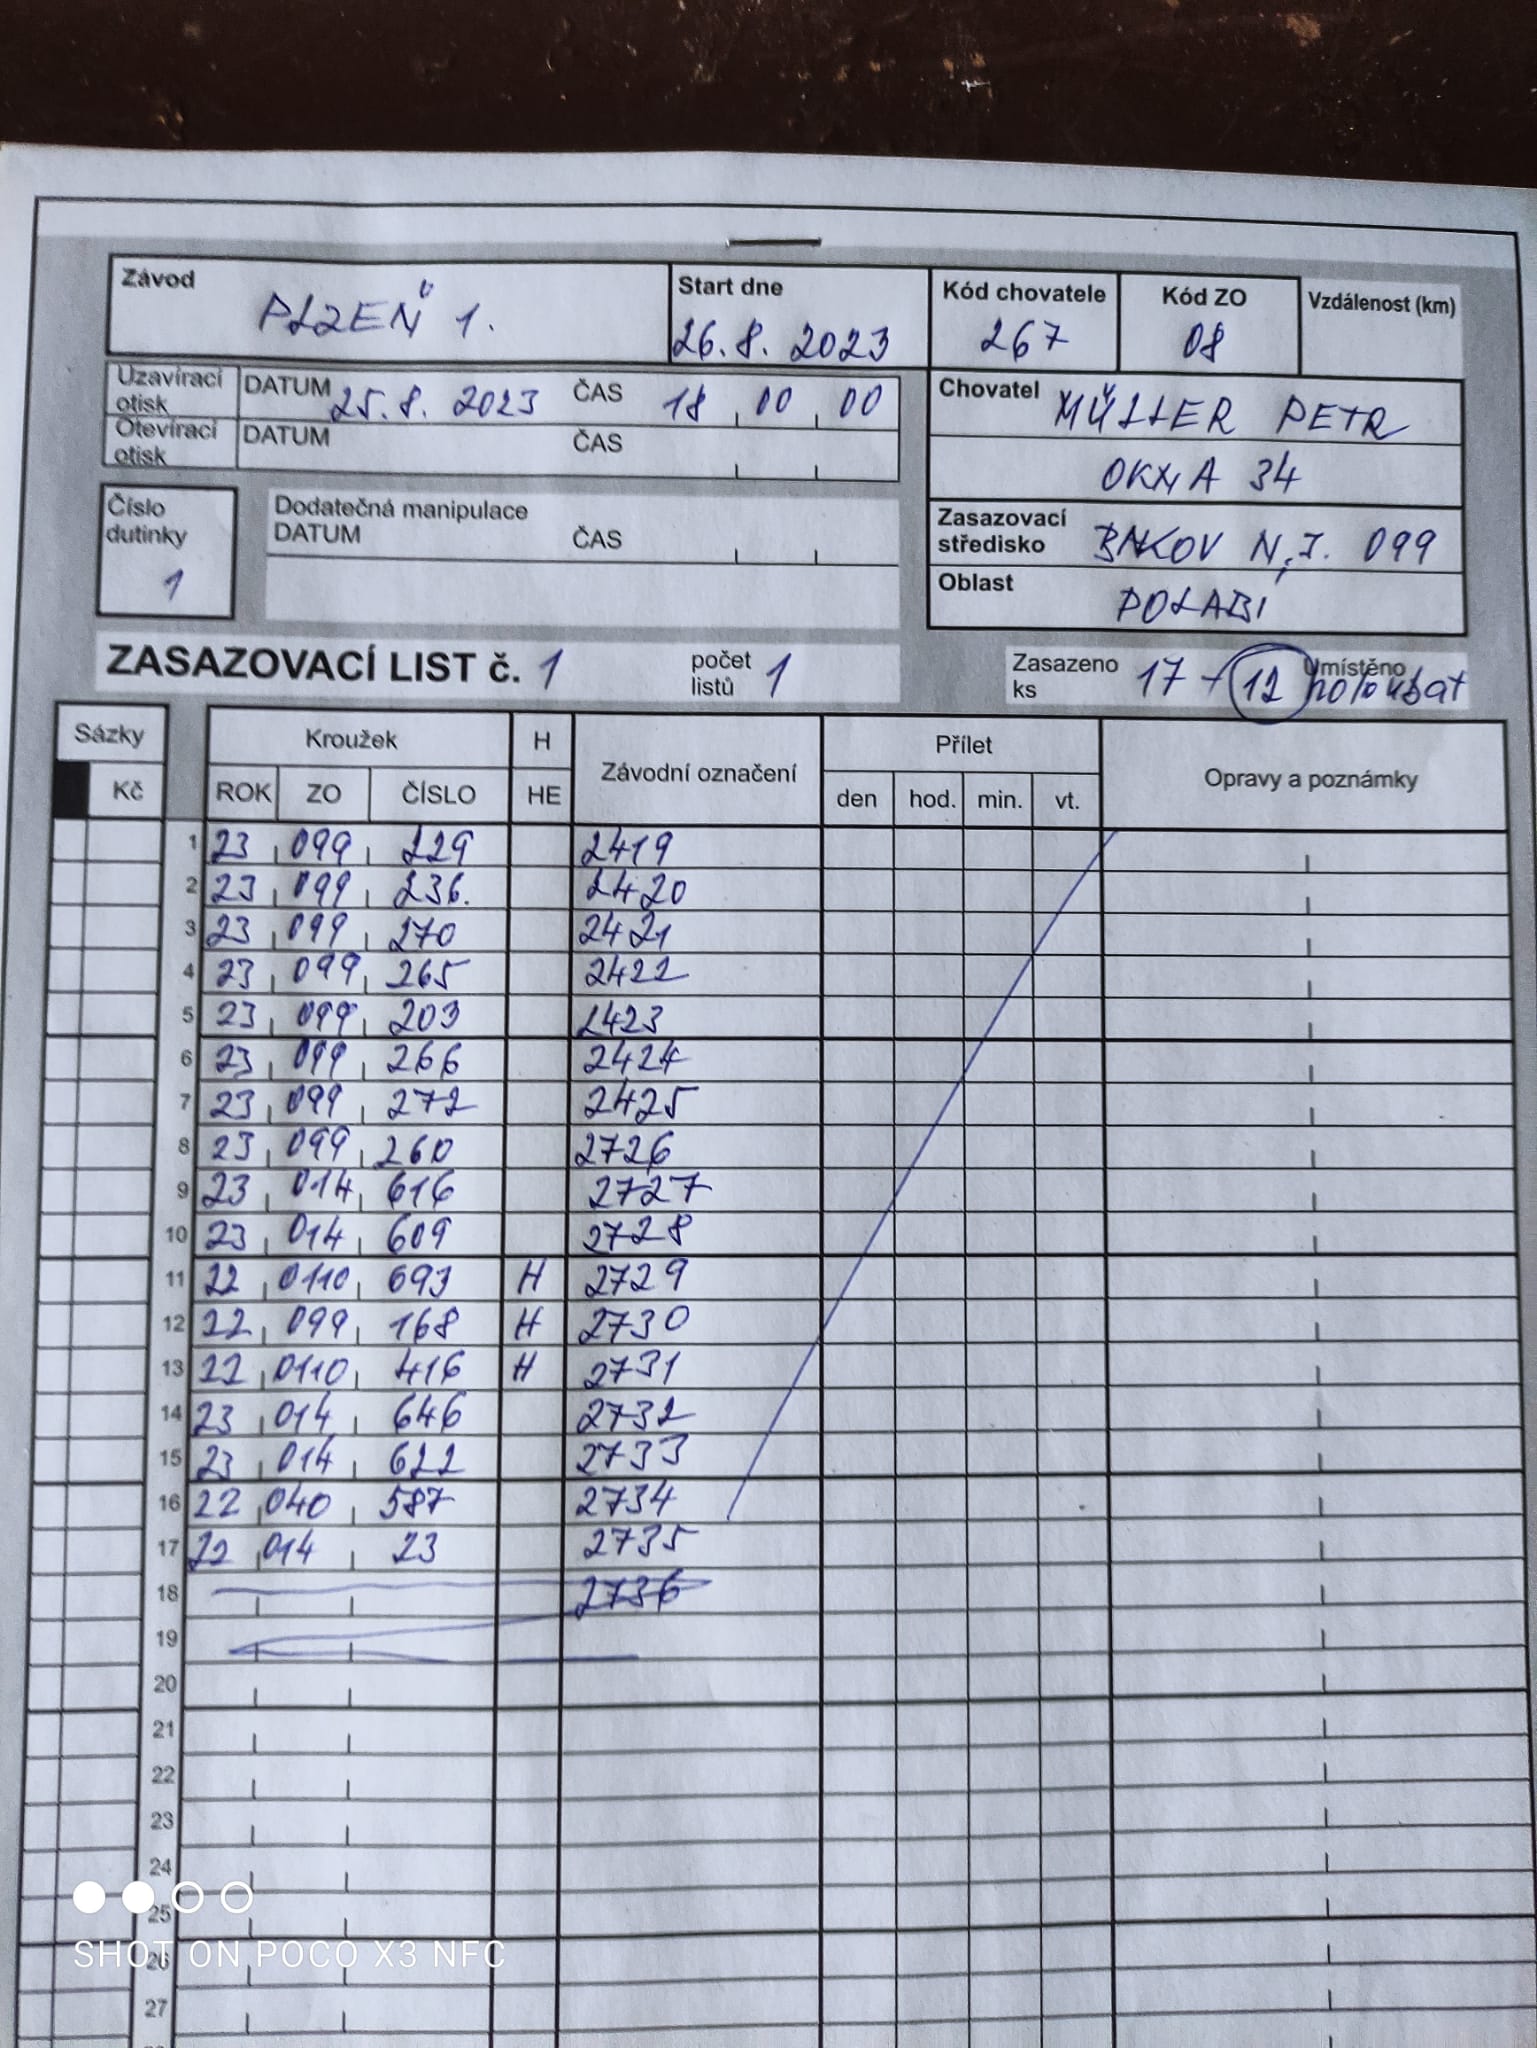 Závod PLZEŇ 1. Start dne 26.8. 2023 Kód chovatele 267 Kód ZO 08 Vzdálenost (km)
Uzavírací otisk DATUM 25.8. 2023 ČAS 18 00 00
Otevírací otisk DATUM ČAS
Chovatel MÜLLER PETR
OKNA 34
Číslo dutinky 1
Dodatečná manipulace
DATUM ČAS
Zasazovací středisko BAKOV N.J. 099
Oblast POLABÍ
ZASAZOVACÍ LIST č. 1 počet listů 1 Zasazeno ks 17 - 12 holoubat Umístěno
Sázky Kroužek H Závodní označení Přílet Opravy a poznámky
Kč ROK ZO ČÍSLO HE den hod. min. vt.
1 23 099 229 2419
2 23 099 236. 2420
3 23 099 270 2421
4 23 099 265 2422
5 23 099 203 2423
6 23 099 266 2424
7 23 099 272 2425
8 23 099 260 2726
9 23 014 616 2727
10 23 014 609 2728
11 22 0110 693 H 2729
12 22 099 168 H 2730
13 22 0110 416 H 2731
14 23 014 646 2732
15 23 014 622 2733
16 22 040 587 2734
17 22 014 23 2735
18 2736
19
20
21
22
23
24
25
26
27
SHOT ON POCO X3 NFC